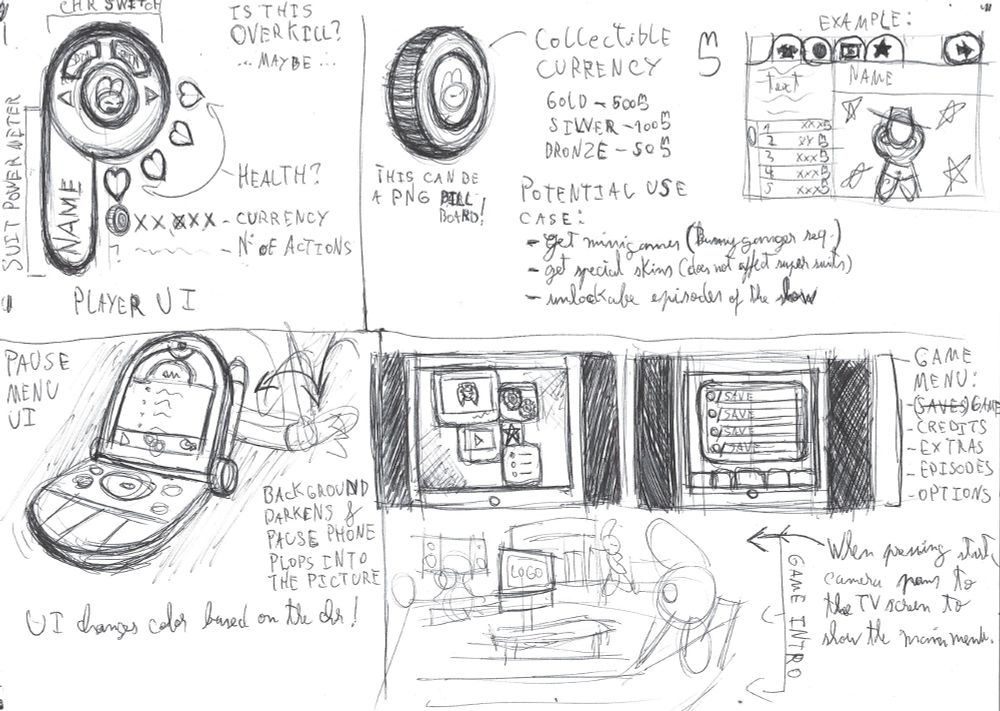 CHR SWITCH
IS THIS
OVERKILL?
... MAYBE ...
SUIT POWER METER
NAME
HEALTH?
XXXXX - CURRENCY
? - N° OF ACTIONS
PLAYER UI
COLLECTIBLE
CURRENCY
GOLD - 500
SILVER - 100
BRONZE - 50
THIS CAN BE
A PNG BILL
BOARD!
POTENTIAL USE
CASE:
- get minigames (Bunny ganger req.)
- get special skins (does not affect super suits)
- unlockabe episodes of the show
EXAMPLE:
Text
NAME
1 XXX
2 XX
3 XXX
4 XXX
5 XXX
PAUSE
MENU
UI
BACKGROUND
DARKENS &
PAUSE PHONE
PLOPS INTO
THE PICTURE
UI changes color based on the chr!
SAVE
SAVE
SAVE
SAVE
GAME
MENU:
- (SAVES) GAME
- CREDITS
- EXTRAS
- EPISODES
- OPTIONS
LOGO
GAME INTRO
When pressing start,
camera pans to
the TV screen to
show the main menu.